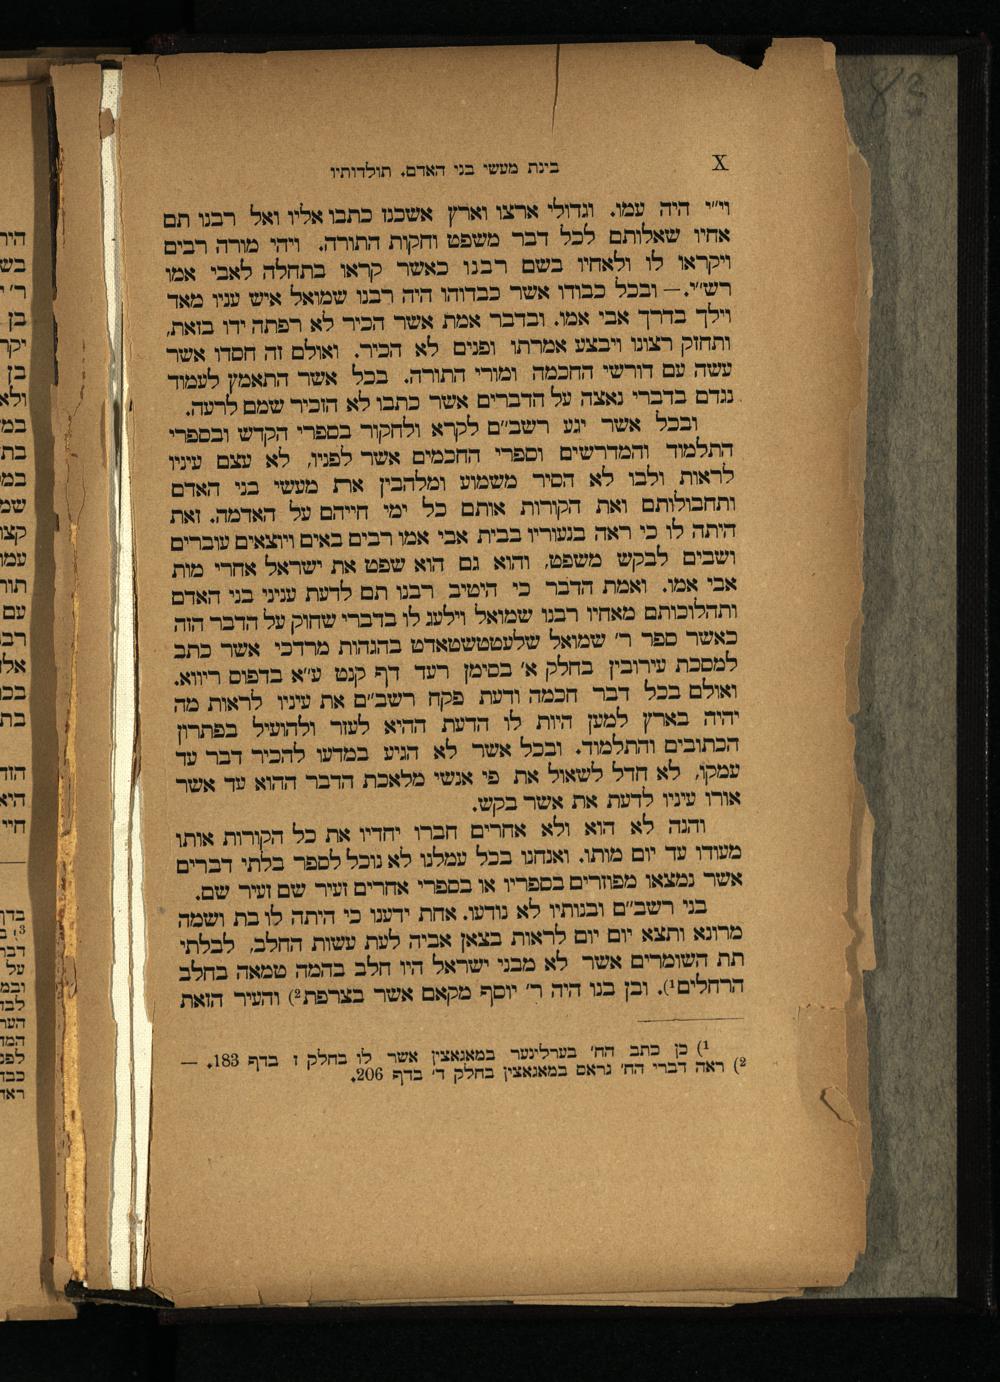 83
X
בינת מעשי בני האדם. תולדותיו
וי״י היה עמו. וגדולי ארצו וארץ אשכנז כתבו אליו ואל רבנו תם
אחיו שאלותם לכל דבר משפט וחקות התורה. ויהי מורה רבים
ויקראו לו ולאחיו בשם רבנו כאשר קראו בתחלה לאבי אמו
רש״י. — ובכל כבודו אשר כבדוהו היה רבנו שמואל איש עניו מאד
וילך בדרך אבי אמו. ובדבר אמת אשר הכיר לא רפתה ידו בזאת,
ותחזק רצונו ויבצע אמרתו ופנים לא הכיר. ואולם זה חסדו אשר
עשה עם דורשי החכמה ומורי התורה. בכל אשר התאמץ לעמוד
נגדם בדברי נאצה על הדברים אשר כתבו לא הזכיר שמם לרעה.
ובכל אשר יגע רשב״ם לקרא ולחקור בספרי הקדש ובספרי
התלמוד והמדרשים וספרי החכמים אשר לפניו, לא עצם עיניו
לראות ולבו לא הסיר משמוע ומלהבין את מעשי בני האדם
ותחבולותם ואת הקורות אותם כל ימי חייהם על האדמה. זאת
היתה לו כי ראה בנעוריו בבית אבי אמו רבים באים ויוצאים עוברים
ושבים לבקש משפט, והוא גם הוא שפט את ישראל אחרי מות
אבי אמו. ואמת הדבר כי היטיב רבנו תם לדעת עניני בני האדם
ותהלוכותם מאחיו רבנו שמואל וילעג לו בדברי שחוק על הדבר הזה
כאשר ספר ר׳ שמואל שלעטטשטאדט בהגהות מרדכי אשר כתב
למסכת עירובין בחלק א׳ בסימן רעד דף קנט ע״א בדפוס ריווא.
ואולם בכל דבר חכמה ודעת פקח רשב״ם את עיניו לראות מה
יהיה בארץ למען היות לו הדעת ההיא לעזר ולהועיל בפתרון
הכתובים והתלמוד. ובכל אשר לא הגיע במדעו להכיר דבר עד
עמקו, לא חדל לשאול את פי אנשי מלאכת הדבר ההוא עד אשר
אורו עיניו לדעת את אשר בקש.
והנה לא הוא ולא אחרים חברו יחדיו את כל הקורות אותו
מעודו עד יום מותו. ואנחנו בכל עמלנו לא נוכל לספר בלתי דברים
אשר נמצאו מפוזרים בספריו או בספרי אחרים זעיר שם זעיר שם.
בני רשב״ם ובנותיו לא נודעו. אחת ידענו כי היתה לו בת ושמה
מרונא ותצא יום יום לראות בצאן אביה לעת עשות החלב, לבלתי
תת השומרים אשר לא מבני ישראל היו חלב בהמה טמאה בחלב
הרחלים¹). ובן בנו היה ר׳ יוסף מקאם אשר בצרפת²) והעיר הזאת
¹) כן כתב הח׳ בערלינער במאגאצין אשר לו בחלק ז בדף 183. —
²) ראה דברי הח׳ גראס במאגאצין בחלק ד׳ בדף 206.